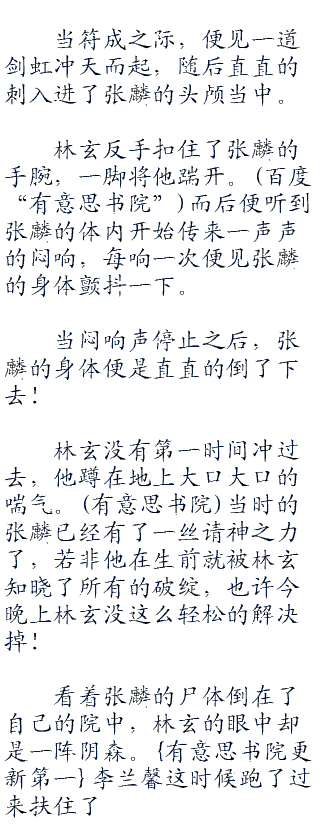 当符成之际，便见一道
剑虹冲天而起，随后直直的
刺入进了张麟的头颅当中。
林玄反手扣住了张麟的
手腕，一脚将他踹开。(百度
“有意思书院”)而后便听到
张麟的体内开始传来一声声
的闷响，每响一次便见张麟
的身体颤抖一下。
当闷响声停止之后，张
麟的身体便是直直的倒了下
去！
林玄没有第一时间冲过
去，他蹲在地上大口大口的
喘气。(有意思书院)当时的
张麟已经有了一丝请神之力
了，若非他在生前就被林玄
知晓了所有的破绽，也许今
晚上林玄没这么轻松的解决
掉！
看着张麟的尸体倒在了
自己的院中，林玄的眼中却
是一阵阴森。{有意思书院更
新第一}李兰馨这时候跑了过
来扶住了